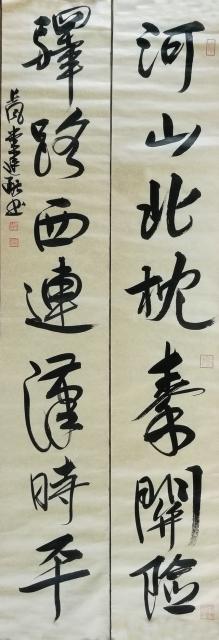 河山北枕秦關險
驛路西連漢時平